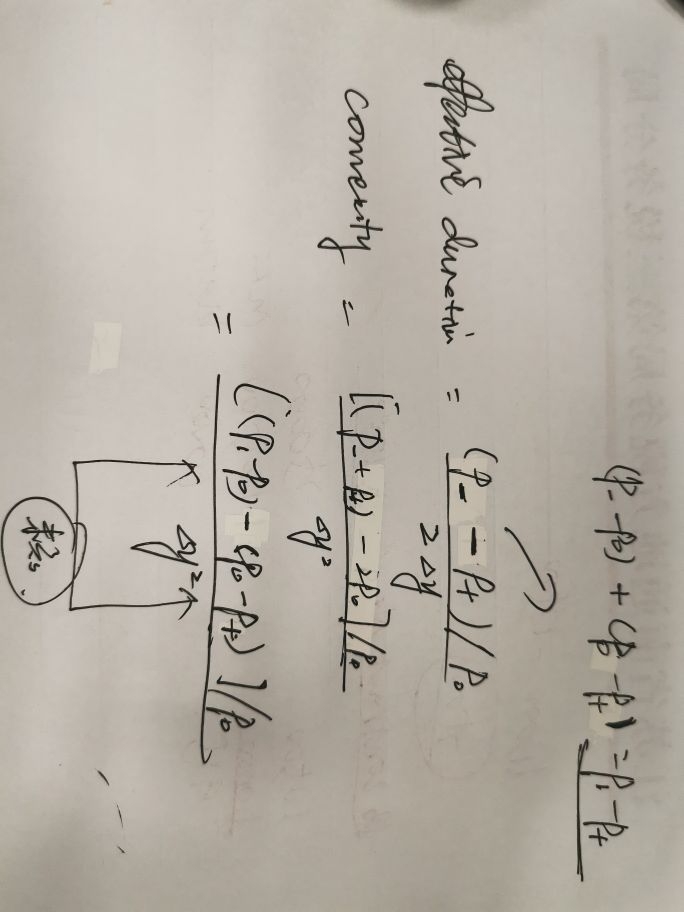 (P₋ - P₀) + (P₀ - P₊) = P₋ - P₊
effective duration = (P₋ - P₊)/P₀ / 2Δy
convexity = [(P₋ + P₊) - 2P₀]/P₀ / Δy²
= [(P₋ - P₀) - (P₀ - P₊)]/P₀ / Δy²